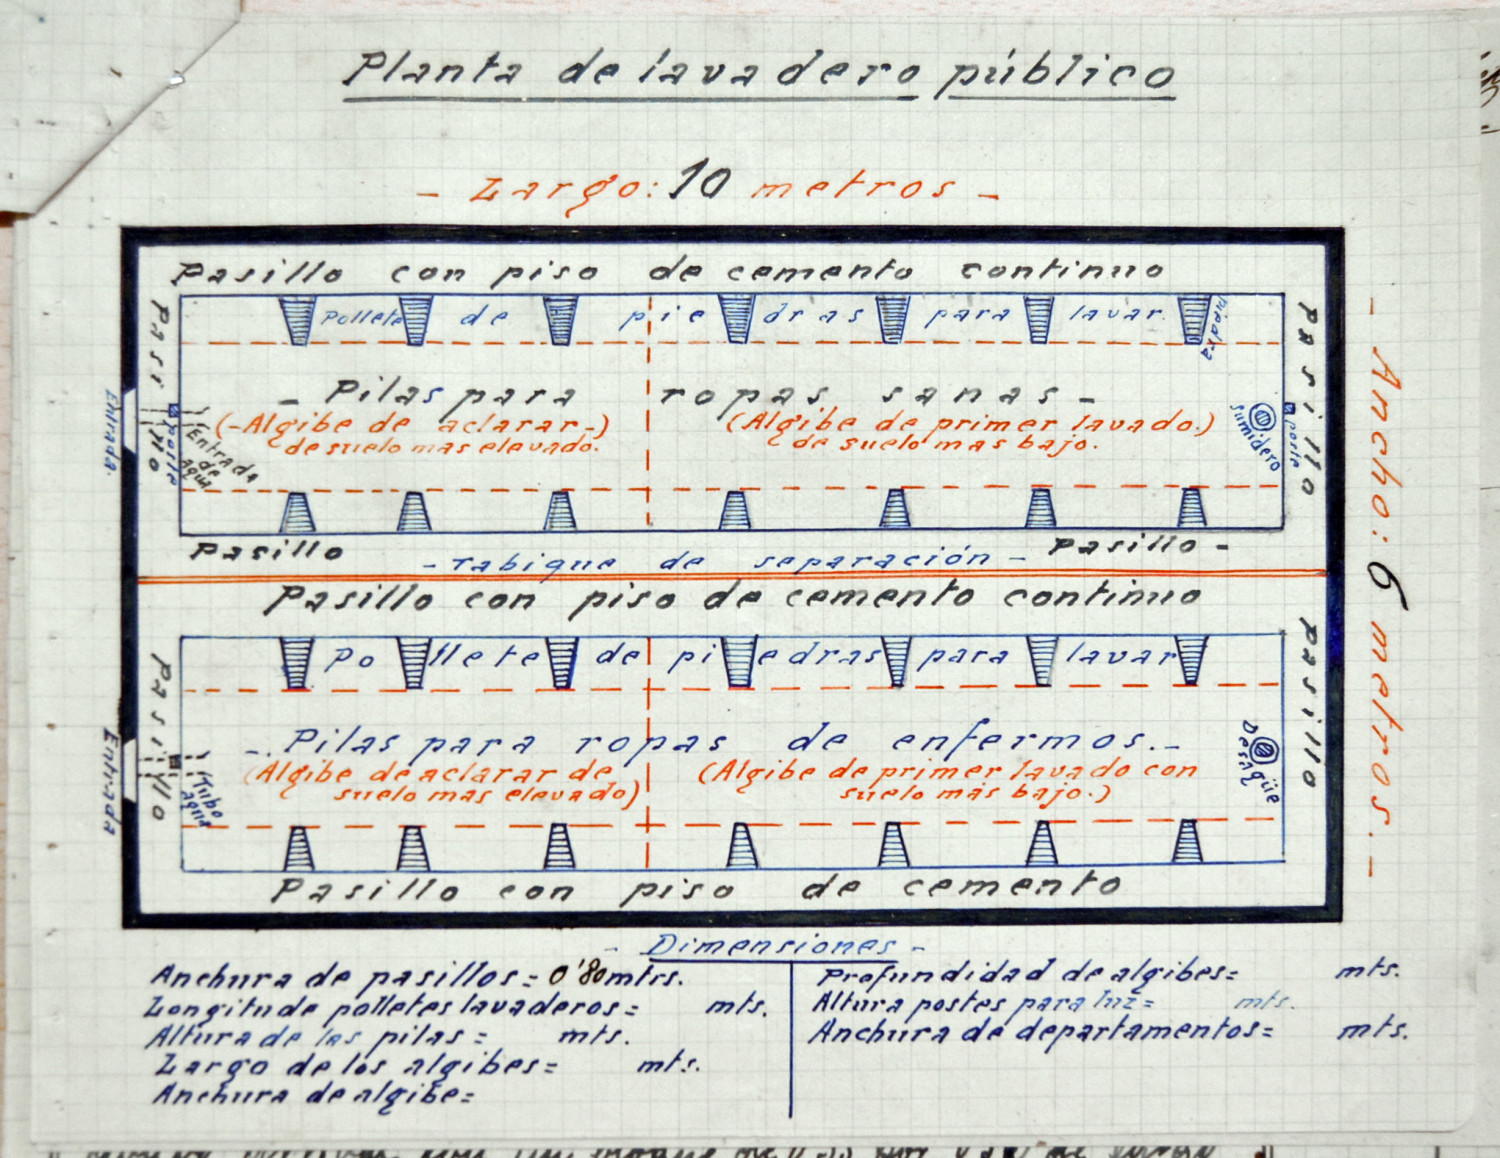 Planta de lavadero público
- Largo: 10 metros -
Pasillo con piso de cemento continuo
Pollete de piedras para lavar.
piedra
Pasillo
Pasillo
- Pilas para ropas sanas -
(-Algibe de aclarar-)
de suelo mas elevado.
(Algibe de primer lavado.)
de suelo mas bajo.
Entrada.
poste
Entrada
de
agua
sumidero
poste
- Ancho: 6 metros. -
Pasillo
Pasillo -
- Tabique de separación -
Pasillo con piso de cemento continuo
Pollete de piedras para lavar
Pasillo
Pasillo
-. Pilas para ropas de enfermos. -
(Algibe de aclarar de
suelo mas elevado)
(Algibe de primer lavado con
suelo más bajo.)
Entrada
tubo
agua
Desagüe
Pasillo con piso de cemento
- Dimensiones -
Anchura de pasillos = 0'80 mtrs.
Longitude polletes lavaderos = mts.
Altura de las pilas = mts.
Largo de los algibes = mts.
Anchura de algibe =
Profundidad de algibes = mts.
Altura postes para luz = mts.
Anchura de departamentos = mts.